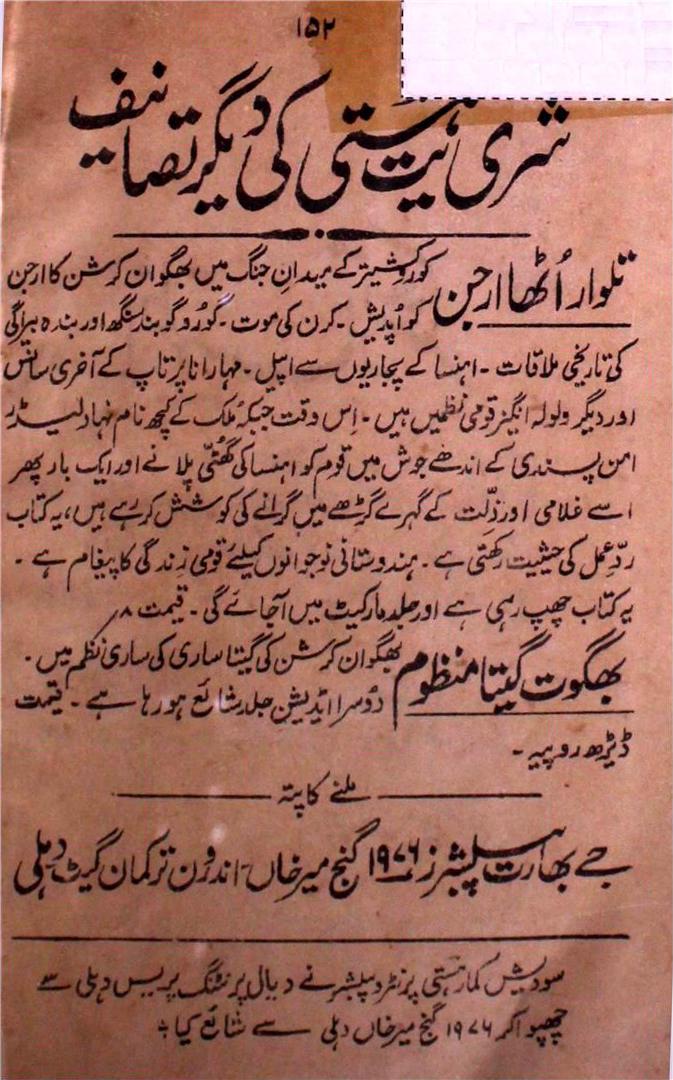 ۱۵۲
شری ہیت ہستی کی دیگر تصانیف
تلوار اُٹھا ارجن کوروکشیتر کے میدانِ جنگ میں بھگوان کرشن کا ارجن
کو اُپدیش ۔ کرن کی موت ۔ گورو گوبند سنگھ اور بندہ بیراگی
کی تاریخی ملاقات ۔ اہنسا کے پجاریوں سے اپیل ۔ مہارانا پرتاپ کے آخری سانس
اور دیگر ولولہ انگیز قومی نظمیں ہیں ۔ اِس وقت جبکہ مُلک کے کچھ نام نہاد لیڈر
امن پسندی کے اندھے جوش میں قوم کو اہنسا کی گھُٹّی پلانے اور ایک بار پھر
اسے غلامی اور ذِلّت کے گہرے گڑھے میں گرانے کی کوشش کر رہے ہیں، یہ کتاب
ردِّ عمل کی حیثیت رکھتی ہے ۔ ہندوستانی نوجوانوں کیلئے قومی زندگی کا پیغام ہے ۔
یہ کتاب چھپ رہی ہے اور جلد مارکیٹ میں آجائے گی ۔ قیمت ۸؍
بھگوت گیتا منظوم بھگوان کرشن کی گیتا ساری کی ساری نظم میں ۔
دُوسرا ایڈیشن جلد شائع ہو رہا ہے ۔ قیمت
ڈیڑھ روپیہ ۔
ملنے کا پتہ
جے بھارت پبلیشرز ۱۹۷۶ گنج میر خاں ۔ اندرون ترکمان گیٹ دہلی
سودیش کمار ہستی پرنٹر و پبلشر نے دیال پرنٹنگ پریس دہلی سے
چھپوا کر ۱۹۷۶ گنج میر خاں دہلی سے شائع کیا ؞